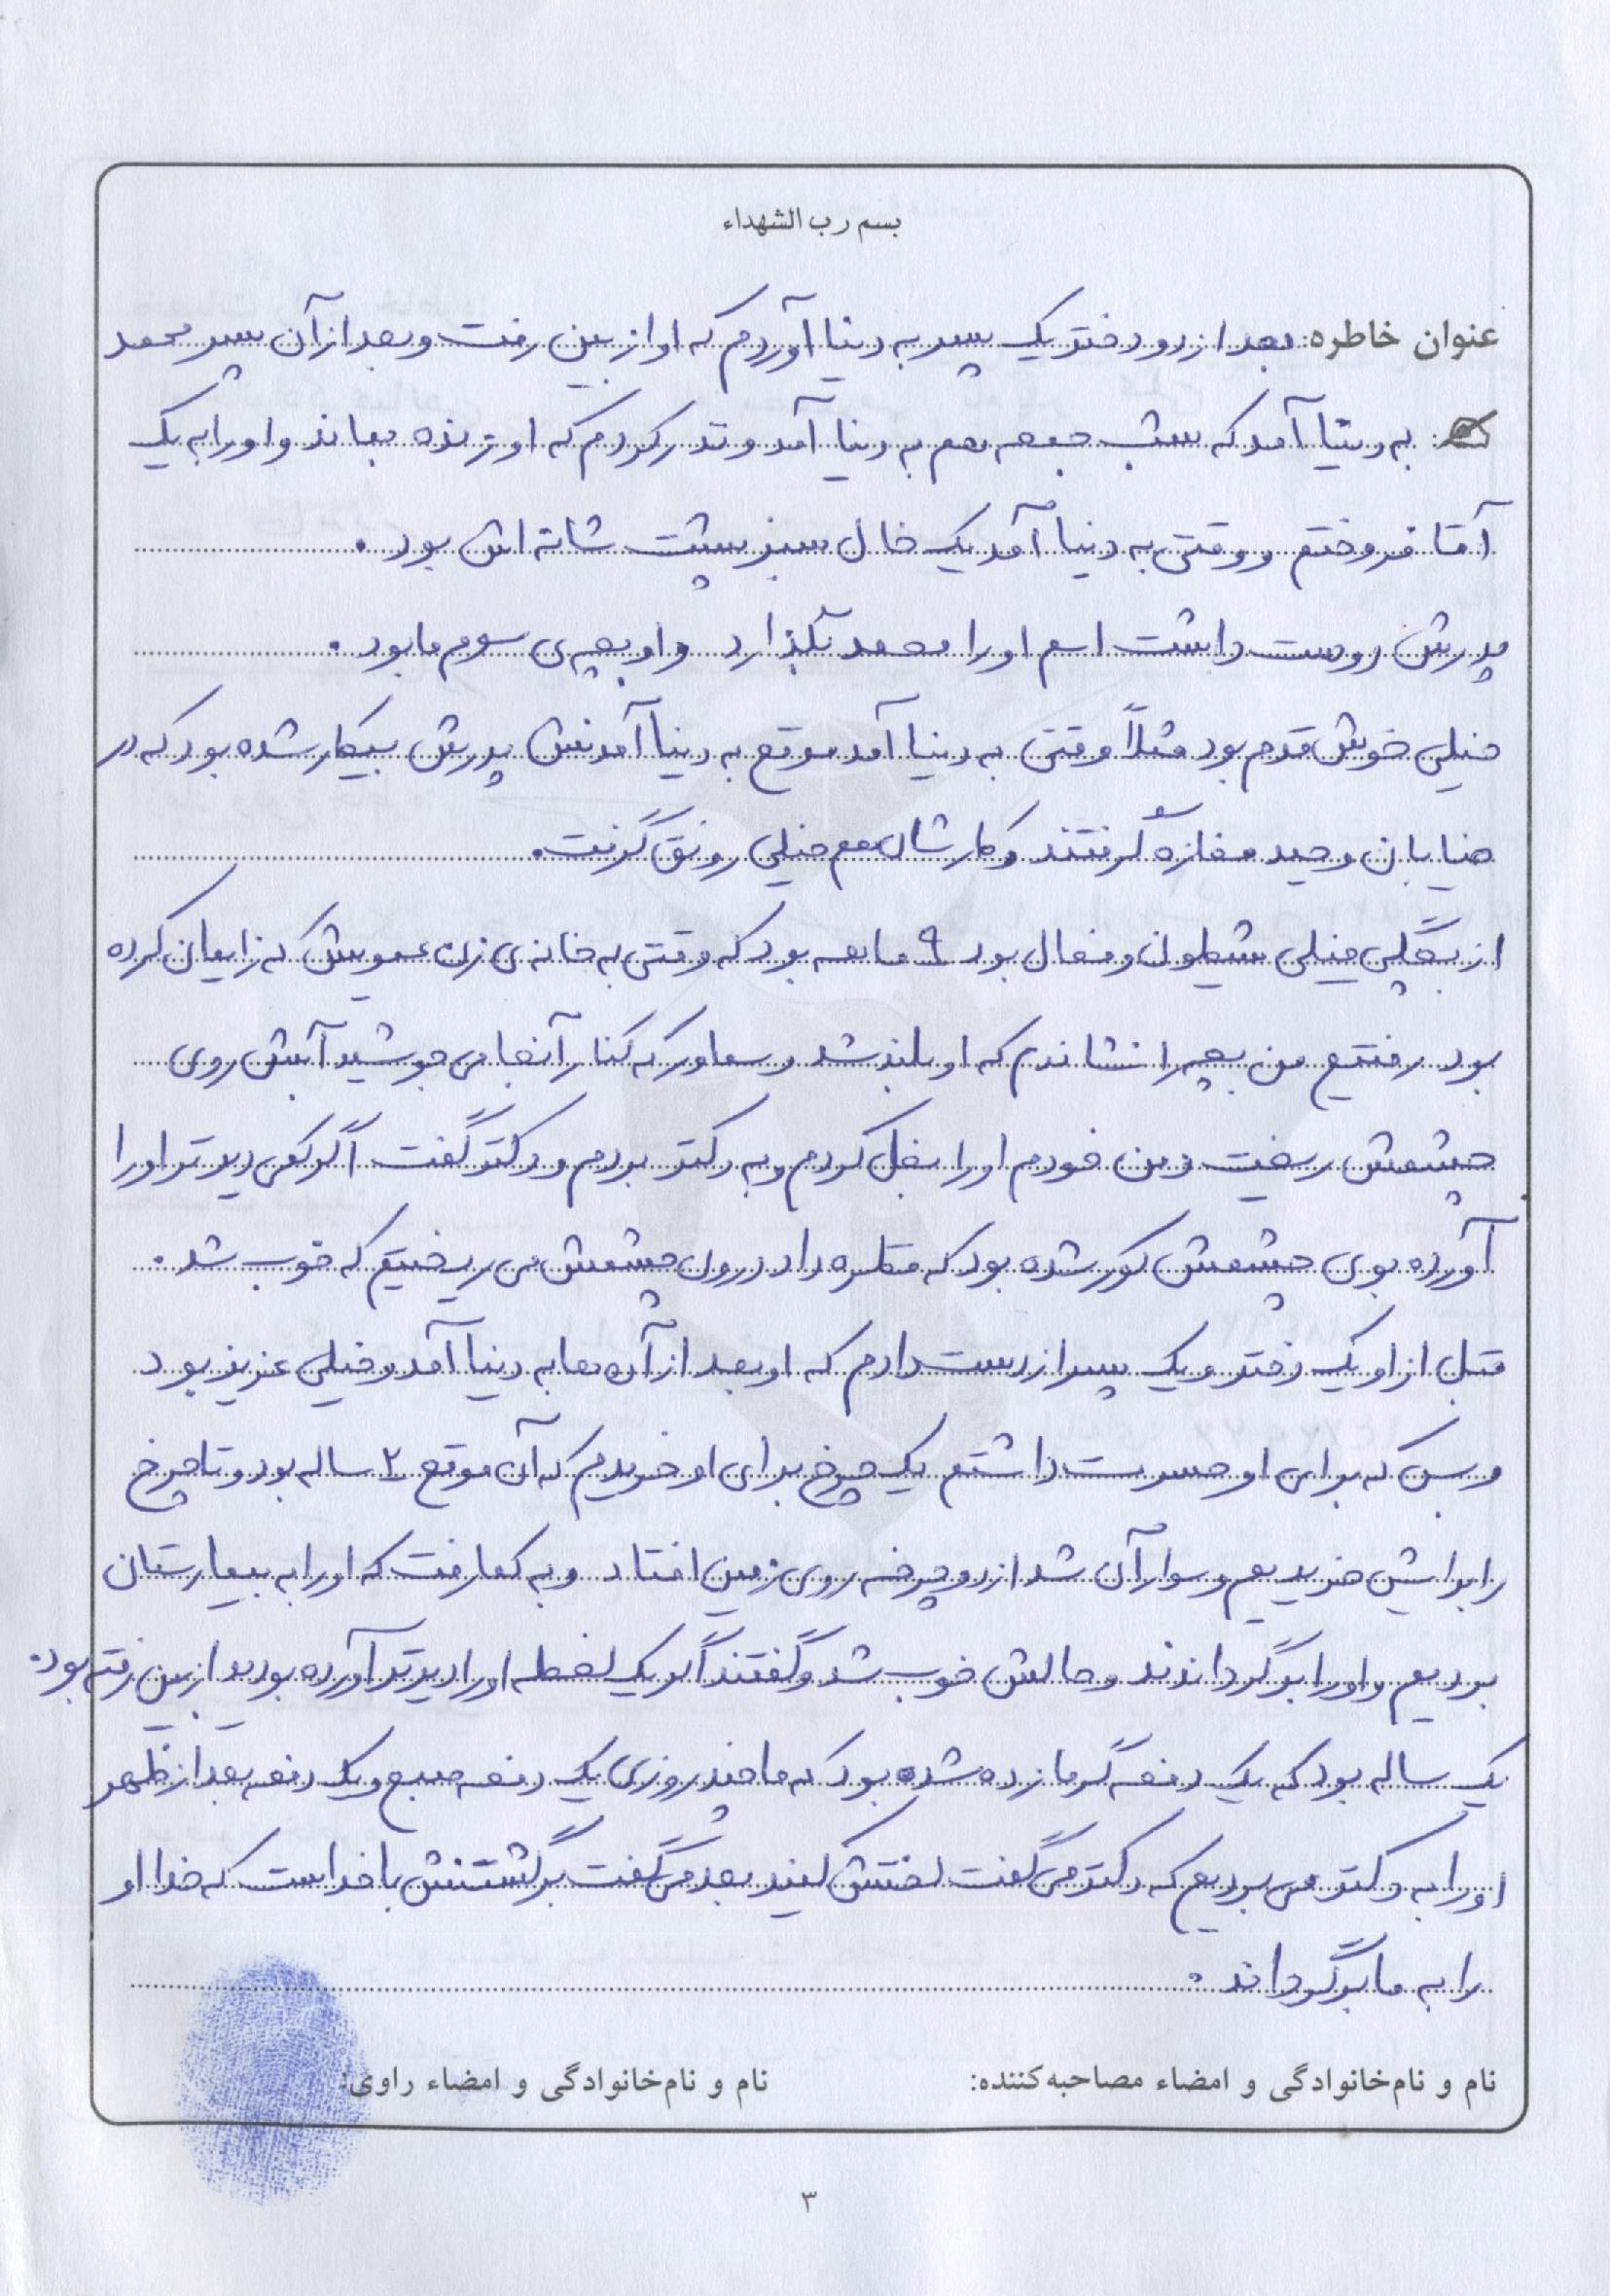 بسم رب الشهداء
عنوان خاطره: بعد از دو دختر یک پسر به دنیا آوردم که او از بین رفت و بعد از آن پسر محمد
به دنیا آمد که شب جمعه هم به دنیا آمد و نذر کردم که او زنده بماند و او را به یک
آقا فروختم و وقتی به دنیا آمد یک خال سبز پشت شانه اش بود.
پدرش دوست داشت اسم او را محمد بگذارد و او بچه ی سوم ما بود.
خیلی خوش قدم بود مثلاً وقتی به دنیا آمد موقع به دنیا آمدنش پدرش بیکار شده بود که در
خیابان وحید مغازه گرفتند و کارشان هم خیلی رونق گرفت.
از بچگی خیلی شیطون و فعال بود ۹ ماهه بود که وقتی به خانه ی زن عمویش که زایمان کرده
بود رفتیم من بچه را نشاندم که او بلند شد و سماور که کنار آنجا می جوشید آبش روی
چشمش ریخت و من خودم او را بغل کردم و به دکتر بردم و دکتر گفت اگر کمی دیرتر او را
آورده بودی چشمش کور شده بود که قطره داد درون چشمش می ریختیم که خوب شد.
قبل از او یک دختر و یک پسر از دست دادم که او بعد از آن ها به دنیا آمد و خیلی عزیز بود
و بس که برای او حسرت داشتم یک چرخ برای او خریدم که آن موقع ۲ ساله بود و تا چرخ
را برایش خریدیم و سوار آن شد از دوچرخه روی زمین افتاد و به کما رفت که او را به بیمارستان
بردیم و او را برگرداندند و حالش خوب شد و گفتند اگر یک لحظه او را دیرتر آورده بودید از بین رفته بود.
یک ساله بود که یک دفعه گرمازده شده بود که ما چند روزی یک دفعه صبح و یک دفعه بعد از ظهر
او را به دکتر می بردیم که دکتر می گفت لختش کنید بعد می گفت برگشتنش با خداست که خدا او
را به ما برگرداند.
نام و نام‌خانوادگی و امضاء مصاحبه‌کننده: نام و نام‌خانوادگی و امضاء راوی:
۳